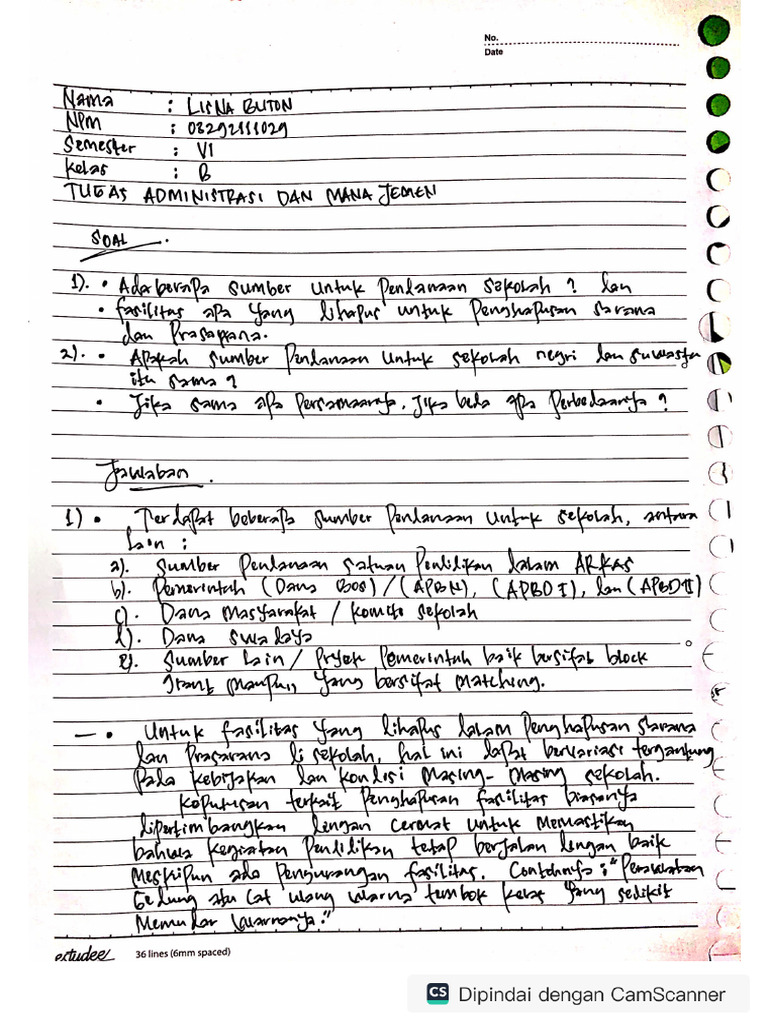 No.
Date
Nama : LISNA BUTON
NPM : 03292111029
Semester : VI
Kelas : B
TUGAS ADMINISTRASI DAN MANAJEMEN
SOAL.
1). • Ada berapa sumber untuk Pendanaan sekolah ? dan
• fasilitas apa yang dihapus untuk Penghapusan sarana
dan Prasarana.
2). • Apakah sumber Pendanaan untuk sekolah negri dan suwasta
itu sama ?
• Jika sama apa Persamaannya. Jika beda apa Perbedaannya ?
Jawaban.
1) • Terdapat beberapa sumber Pendanaan untuk sekolah, antara
lain :
a). Sumber Pendanaan satuan Pendidikan dalam ARKAS
b). Pemerintah (Dana Bos) / (APBN), (APBD I), dan (APBD II)
c). Dana Masyarakat / Komite sekolah
d). Dana swadaya
e). Sumber lain / Proyek Pemerintah baik bersifat block
grant maupun yang bersifat matching.
— • Untuk fasilitas yang dihapus dalam Penghapusan sarana
dan Prasarana di sekolah, hal ini dapat bervariasi tergantung
Pada kebijakan dan kondisi masing-masing sekolah.
Keputusan terkait Penghapusan fasilitas biasanya
dipertimbangkan dengan cermat untuk memastikan
bahwa kegiatan Pendidikan tetap berjalan dengan baik
meskipun ada Pengurangan fasilitas. Contohnya : "Perawatan
Gedung atau Cat ulang warna tembok kelas yang sedikit
Memudar warnanya."
estudee
36 lines (6mm spaced)
CS Dipindai dengan CamScanner